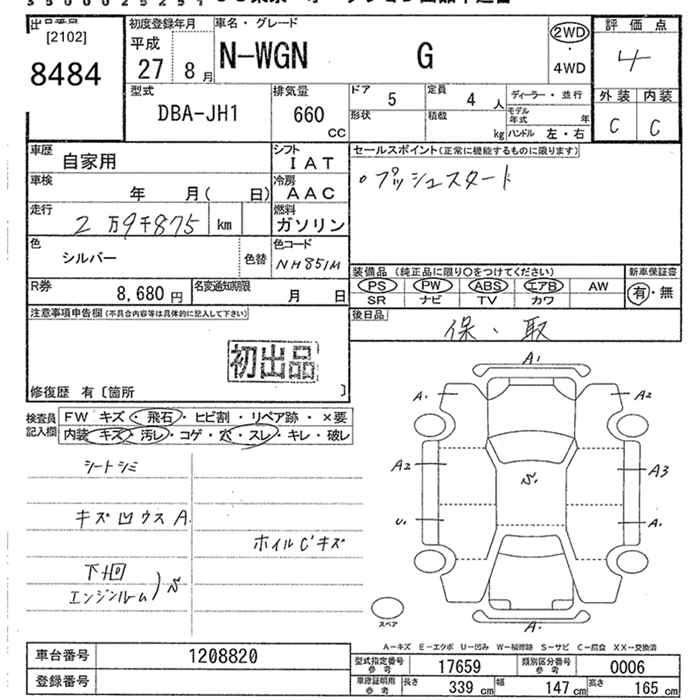 出品番号
[2102]
8484
初度登録年月
平成
27 8 月
車名・グレード
N-WGN G
2WD
・
4WD
評価点
4
外装 内装
C C
型式
DBA-JH1
排気量
660
CC
ドア
5
定員
4 人
形状
積載
kg
ディーラー・並行
モデル年式 年
ハンドル 左・右
車歴
自家用
シフト
IAT
車検
年 月( 日)
冷房
AAC
走行
2万9千875 km
燃料
ガソリン
色
シルバー
色替
色コード
NH851M
R券
8,680 円
名変通知期限
月 日
セールスポイント(正常に機能するものに限ります)
○プッシュスタート
装備品 (純正品に限り○をつけてください)
PS PW ABS エアB AW
SR ナビ TV カワ
新車保証書
有・無
後日品
保、取
注意事項申告欄(不具合内容等は具体的に記入して下さい)
初出品
修復歴 有〔箇所 〕
検査員
記入欄
FW キズ・飛石・ヒビ割・リペア跡・×要
内装 キズ・汚レ・コゲ・穴・スレ・キレ・破レ
シートシミ
キズ凹ウスA
ホイルCキズ
下回
エンジンルーム
A1
A1 A2
A2 A3
U1 A1
A1
スペア
A―キズ E―エクボ U―凹み W―補修跡 S―サビ C―腐食 XX―交換済
車台番号
1208820
登録番号
型式指定番号
参考
17659
類別区分番号
参考
0006
車庫証明用
参考
長さ 339 cm 幅 147 cm 高さ 165 cm